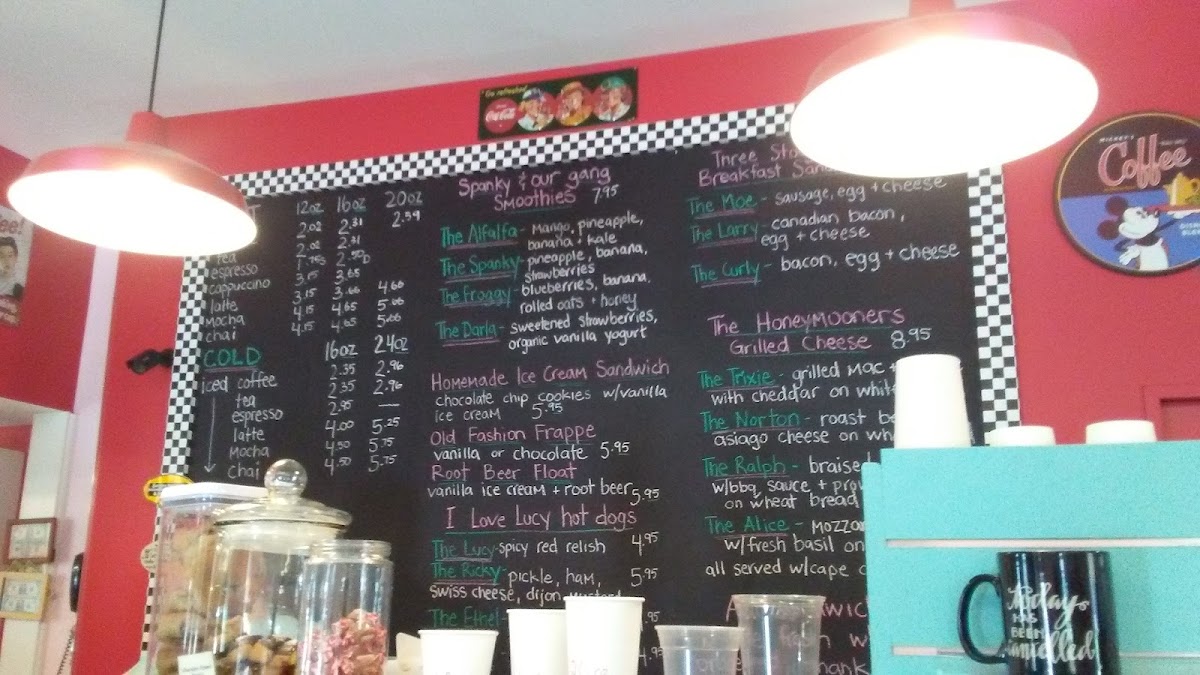 Coca-Cola
MICKEY'S
Coffee
12oz 16oz 20oz
2.02 2.31 2.59
2.02 2.31
tea
espresso
cappuccino 3.15 3.65
latte 3.15 3.66 4.66
Mocha 4.15 4.65 5.66
chai 4.15 4.65 5.66
COLD 16oz 24oz
iced coffee 2.35 2.96
tea 2.35 2.96
espresso 2.95 —
latte 4.00 5.25
Mocha 4.50 5.75
chai 4.50 5.75
Spanky & our gang
Smoothies 7.95
The Alfalfa - Mango, pineapple,
banana + kale
The Spanky - pineapple, banana,
strawberries
The Froggy - blueberries, banana,
rolled oats + honey
The Darla - sweetened strawberries,
organic vanilla yogurt
Homemade Ice Cream Sandwich
chocolate chip cookies w/vanilla
ice cream 5.95
Old Fashion Frappe
vanilla or chocolate 5.95
Root Beer Float
vanilla ice cream + root beer 5.95
I Love Lucy hot dogs
The Lucy - spicy red relish 4.95
The Ricky - pickle, ham, 5.95
swiss cheese, dijon
The Ethel
Three
Breakfast
The Moe - sausage, egg + cheese
The Larry - canadian bacon,
egg + cheese
The Curly - bacon, egg + cheese
The Honeymooners
Grilled Cheese 8.95
The Trixie - grilled mac
with cheddar on
The Norton - roast
asiago cheese on
The Ralph - braised
w/bbq sauce +
on wheat bread
The Alice -
w/fresh basil on
all served w/cape
Today
HAS
BEEN
cancelled